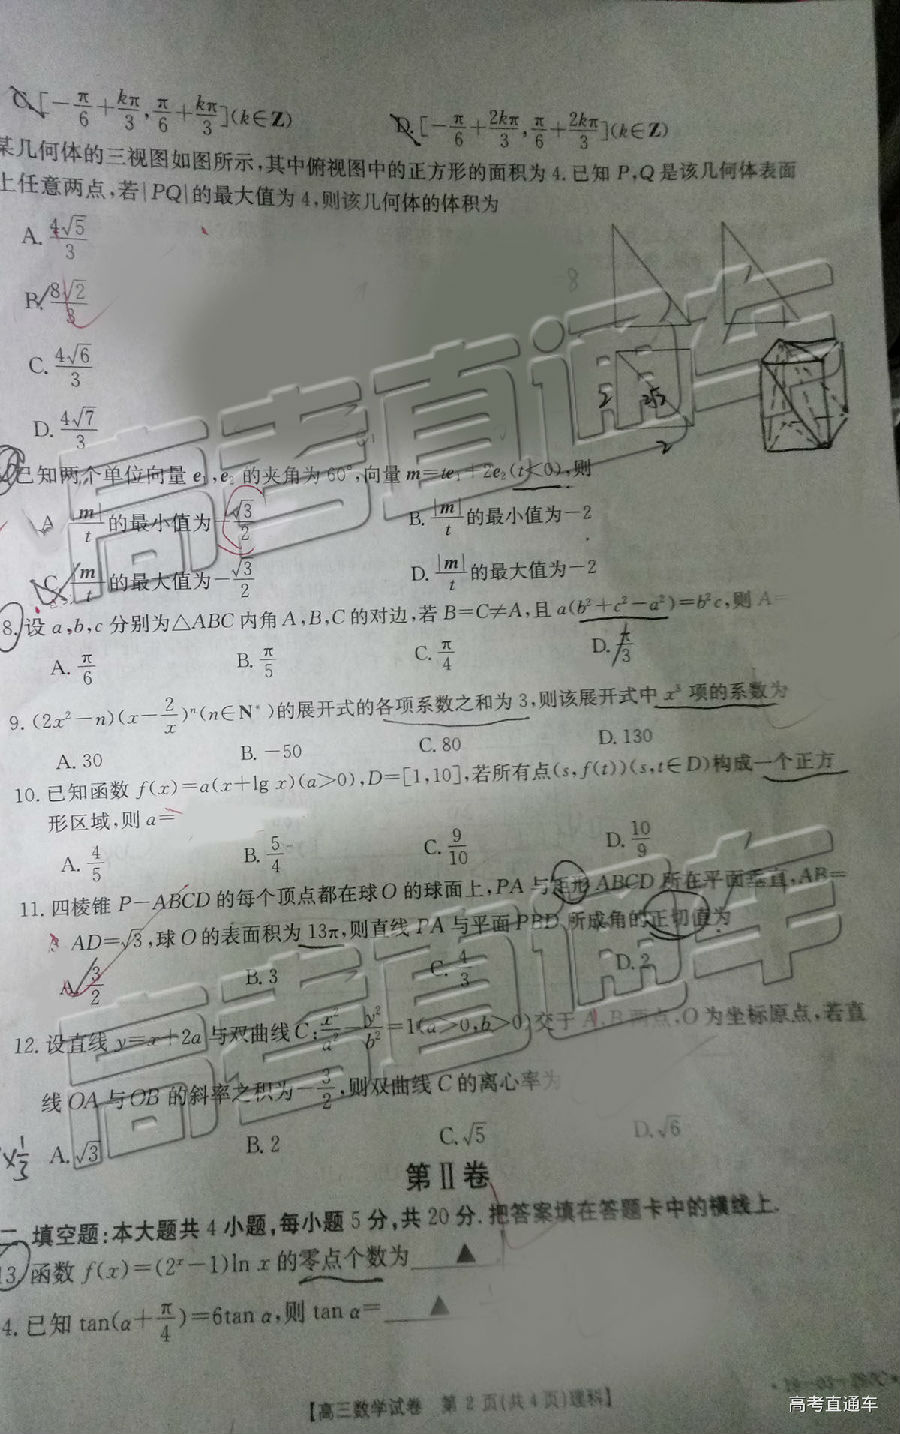 C. [-π/6+kπ/3, π/6+kπ/3](k∈Z) D. [-π/6+2kπ/3, π/6+2kπ/3](k∈Z)
某几何体的三视图如图所示,其中俯视图中的正方形的面积为4.已知P,Q是该几何体表面
上任意两点,若|PQ|的最大值为4,则该几何体的体积为
A. 4√5/3
B. 8√2/3
8
C. 4√6/3
2 2√2
D. 4√7/3
2
已知两个单位向量e₁,e₂的夹角为60°,向量m=te₁+2e₂(t<0),则
A. |m|/t的最小值为-√3/2 B. |m|/t的最小值为-2
C. |m|/t的最大值为-√3/2 D. |m|/t的最大值为-2
8. 设a,b,c分别为△ABC内角A,B,C的对边,若B=C≠A,且a(b²+c²-a²)=b²c,则A=
A. π/6 B. π/5 C. π/4 D. π/3
9. (2x²-n)(x-2/x)ⁿ(n∈N*)的展开式的各项系数之和为3,则该展开式中x³项的系数为
A. 30 B. -50 C. 80 D. 130
10. 已知函数f(x)=a(x+lg x)(a>0),D=[1,10],若所有点(s,f(t))(s,t∈D)构成一个正方
形区域,则a=
A. 4/5 B. 5/4 C. 9/10 D. 10/9
11. 四棱锥P-ABCD的每个顶点都在球O的球面上,PA与矩形ABCD所在平面垂直,AB=
AD=√3,球O的表面积为13π,则直线PA与平面PBD所成角的正切值为
A. 3/2 B. 3 C. 4/3 D. 2
12. 设直线y=x+2a与双曲线C:x²/a²-y²/b²=1(a>0,b>0)交于A,B两点,O为坐标原点,若直
线OA与OB的斜率之积为-3/2,则双曲线C的离心率为
×1/3 A. √3 B. 2 C. √5 D. √6
第Ⅱ卷
二、填空题:本大题共4小题,每小题5分,共20分.把答案填在答题卡中的横线上.
13. 函数f(x)=(2ˣ-1)ln x的零点个数为 ▲
4. 已知tan(α+π/4)=6tan α,则tan α= ▲
【高三数学试卷 第2页(共4页)理科】
高考直通车
高考直通车
高考直通车